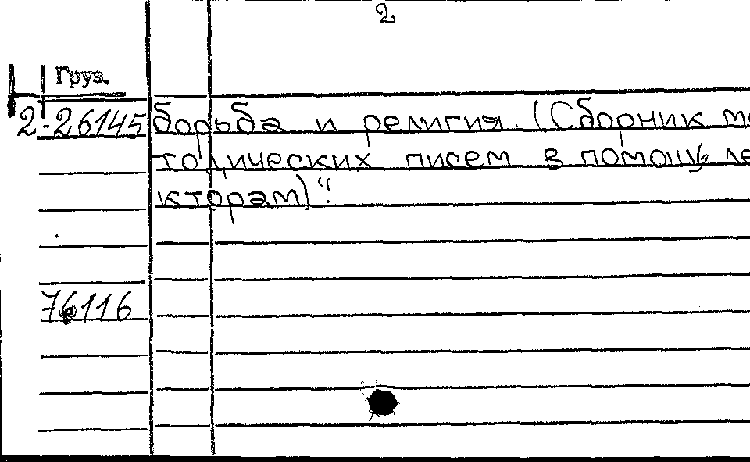 2
Груз.
2-26145 борьба и религия. (Сборник ме
тодических писем в помощь ле
кторам)".
76116